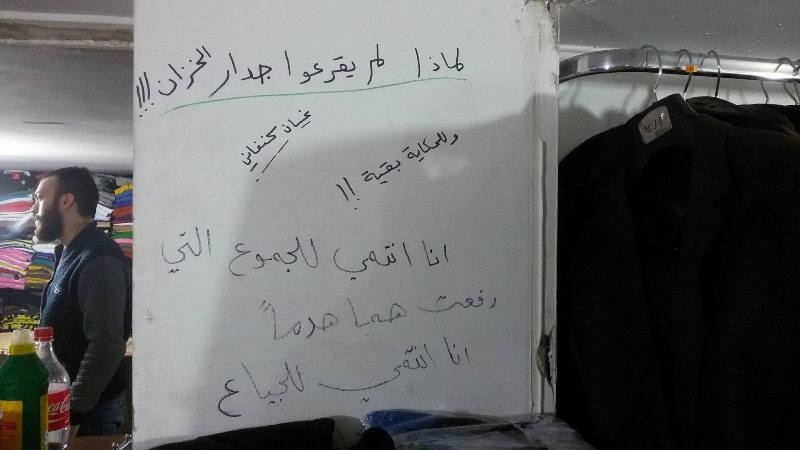 لماذا لم يقرعوا جدار الخزان !!!
غسان كنفاني
وللحكاية بقية !!
انا انتمي للجموع التي
رفعت همها هرماً
انا انتمي للجياع
Coca-Cola